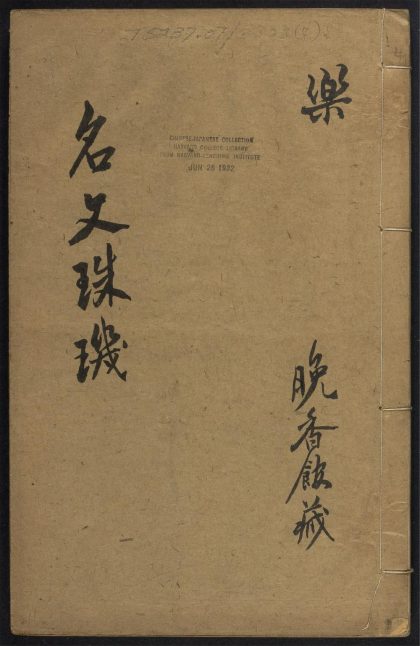 樂
晚香館藏
名文珠璣
CHINESE-JAPANESE COLLECTION
HARVARD COLLEGE LIBRARY
FROM HARVARD-YENCHING INSTITUTE
JUN 28 1932